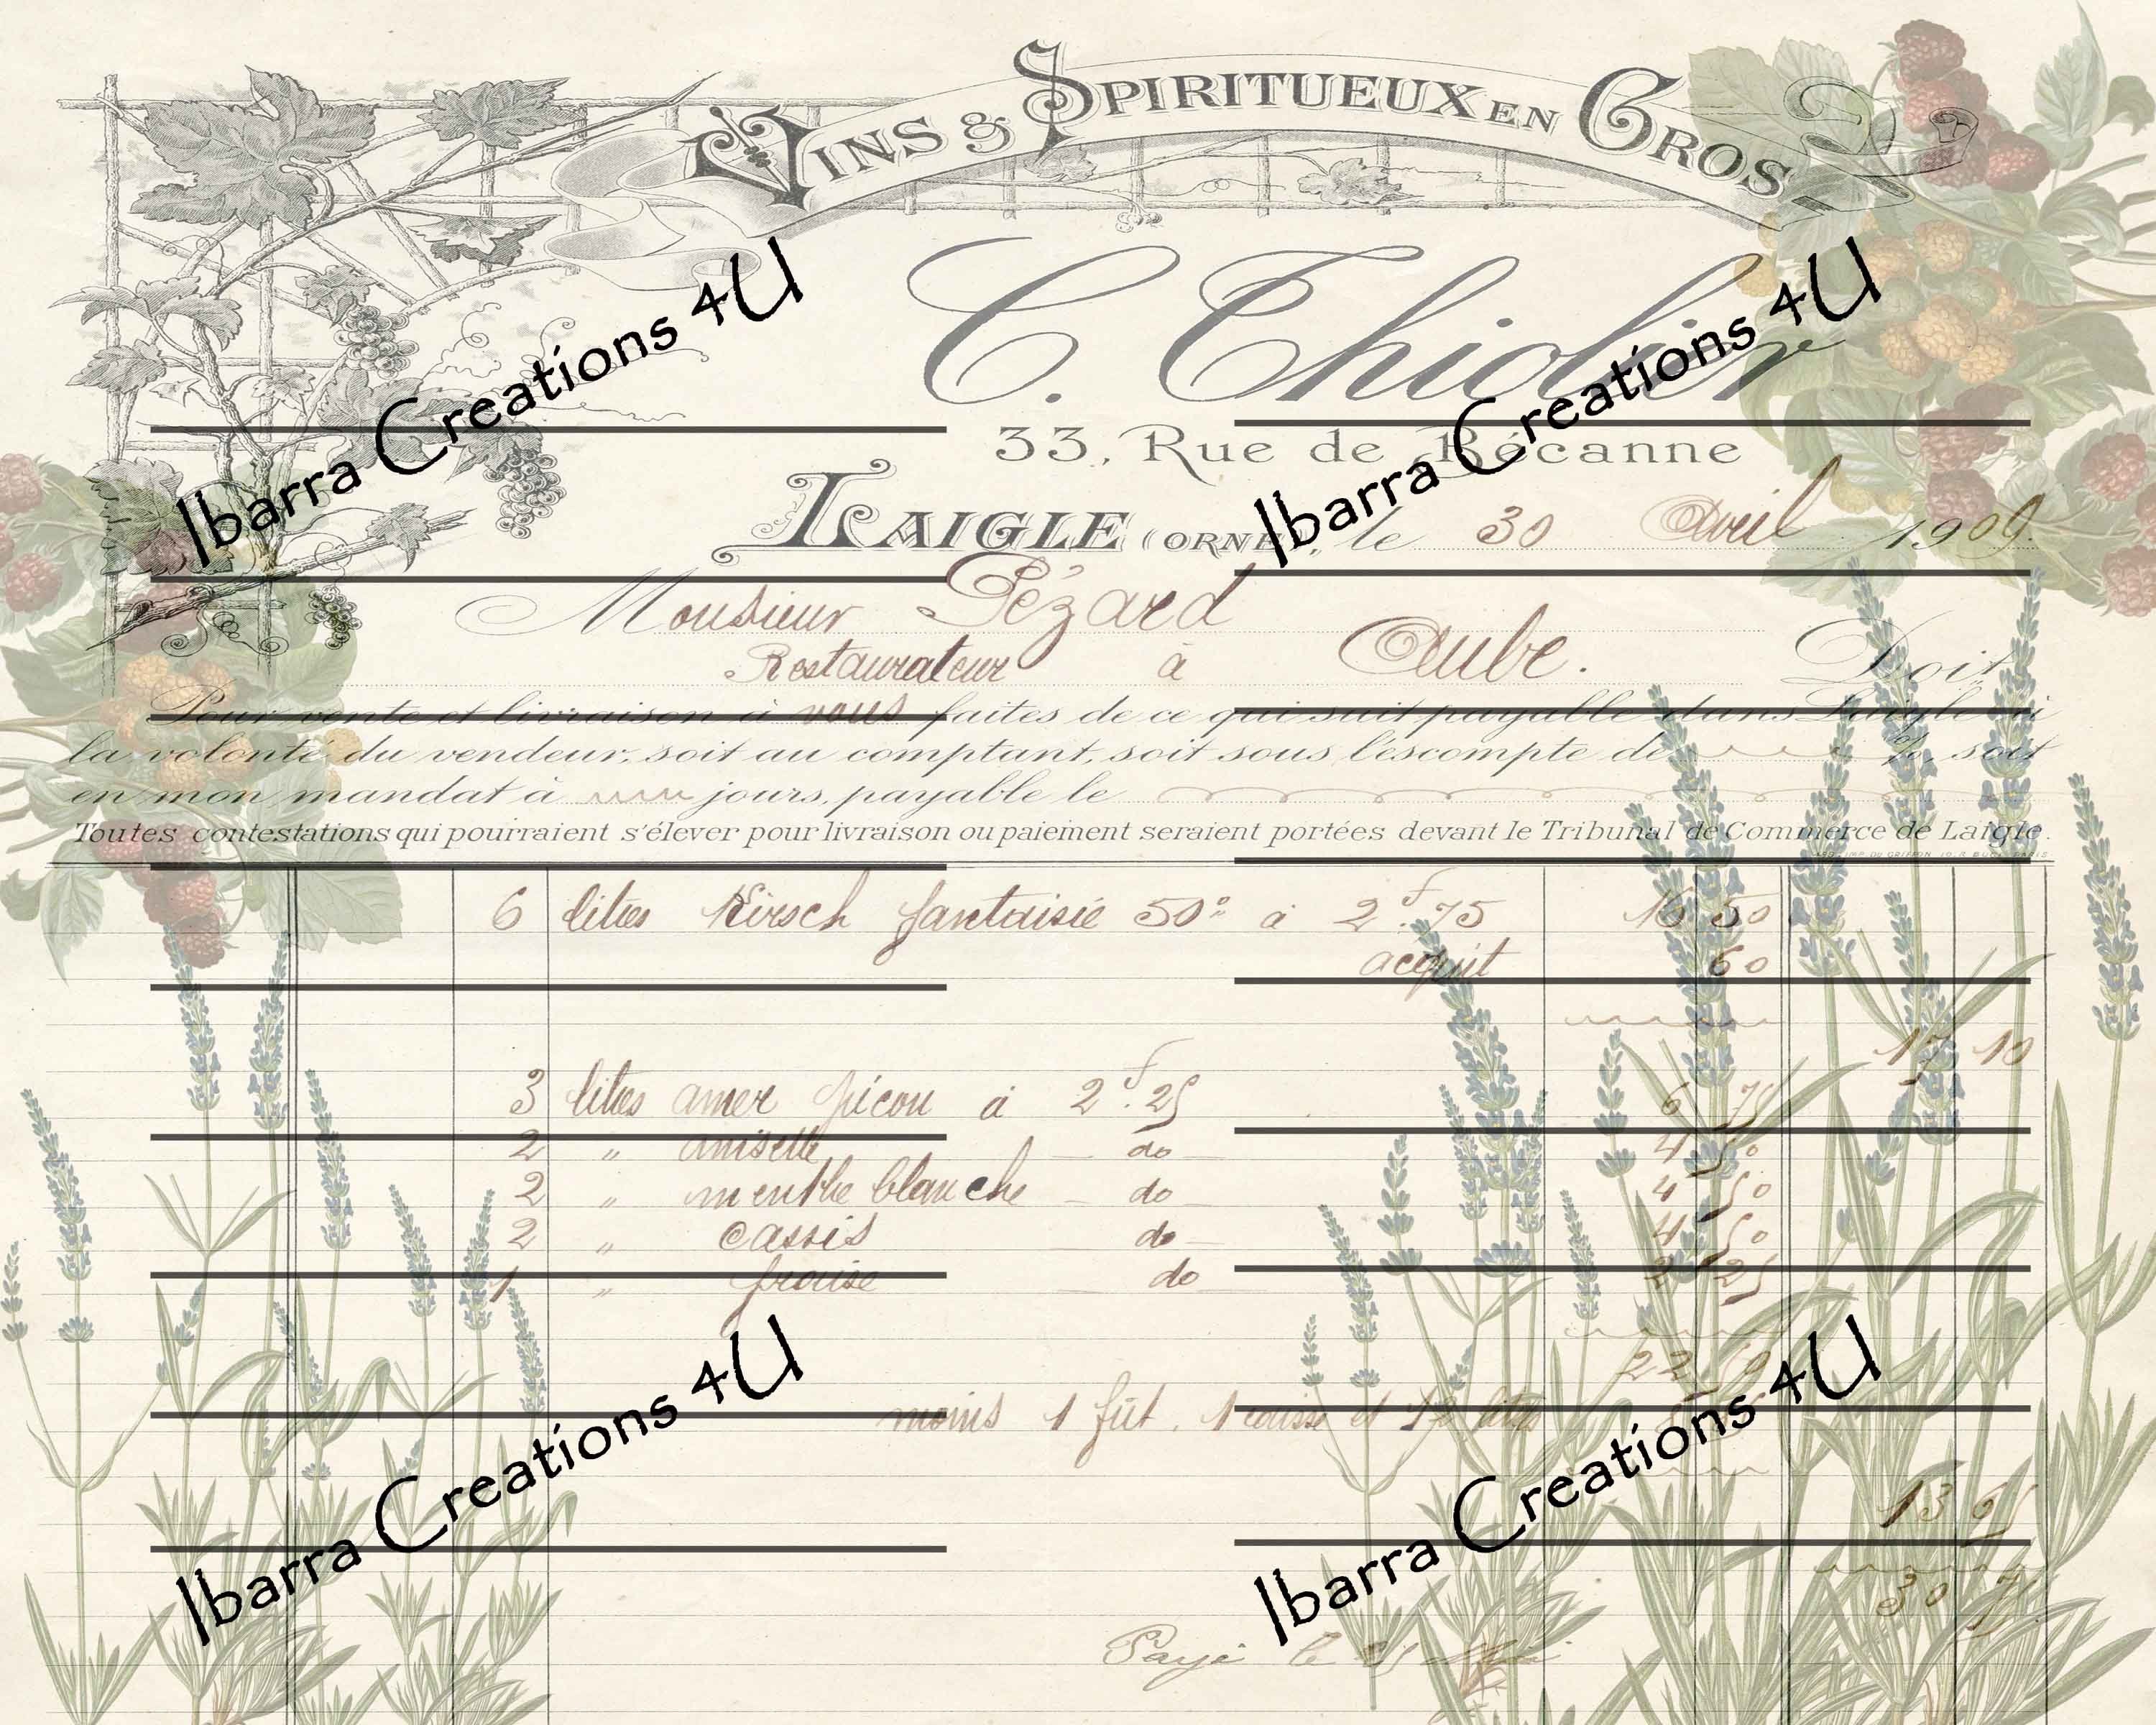 VINS & SPIRITUEUX EN GROS
C. Thiolier
33, Rue de Bécanne
LAIGLE (ORNE), le 30 Avril 1909.
Monsieur Pézard
Restaurateur à Aube. Doit
Pour vente et livraison à vous faites de ce qui suit payable dans Laigle à
la volonté du vendeur, soit au comptant, soit sous l'escompte de %, soit
en mon mandat à jours, payable le
Toutes contestations qui pourraient s'élever pour livraison ou paiement seraient portées devant le Tribunal de Commerce de Laigle.
6 litres Kirsch fantaisie 50° à 2f.75 16 50
acquit 60
17 10
3 litres amer picon à 2f.25 6 75
2 " anisette do 4 50
2 " menthe blanche do 4 50
2 " cassis do 4 50
1 " fraise do 2 25
22 50
moins 1 fût, 1 caisse et litres
13 65
30 75
Payé le
Ibarra Creations 4U
Ibarra Creations 4U
Ibarra Creations 4U
Ibarra Creations 4U